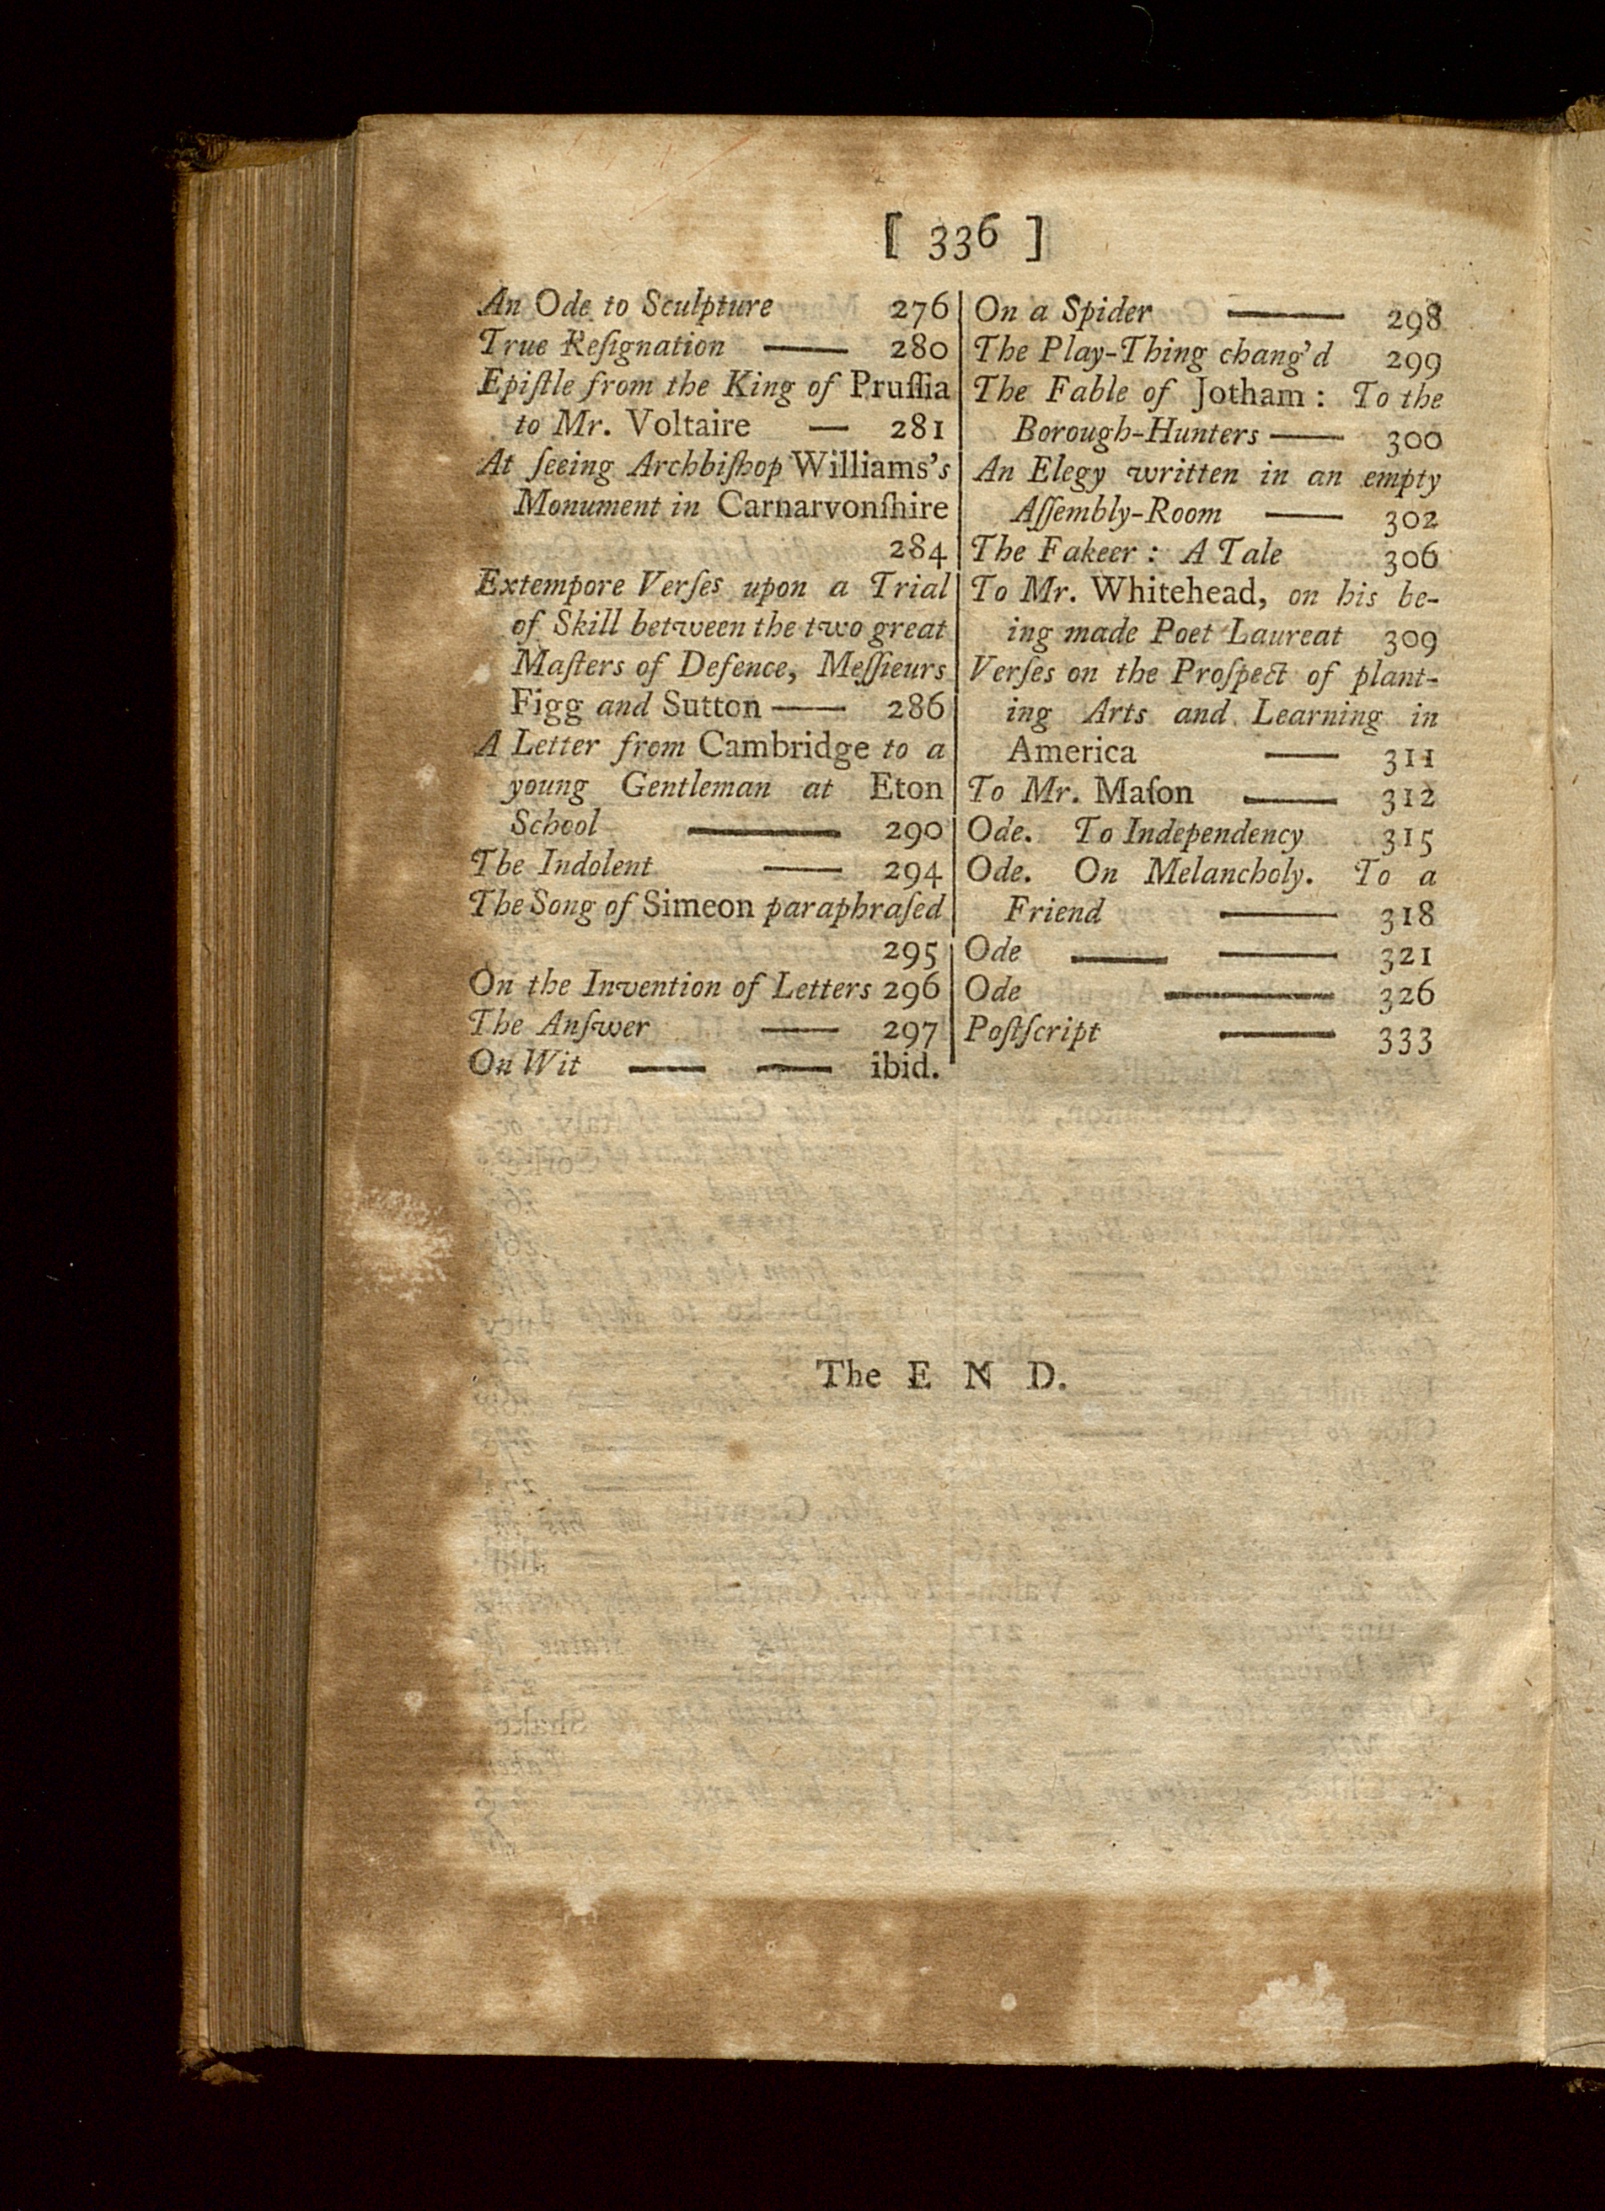 [ 336 ]
An Ode to Sculpture 276
True Reſignation —— 280
Epiſtle from the King of Pruſſia
to Mr. Voltaire — 281
At ſeeing Archbiſhop Williams's
Monument in Carnarvonſhire
284
Extempore Verſes upon a Trial
of Skill between the two great
Maſters of Defence, Meſſieurs
Figg and Sutton —— 286
A Letter from Cambridge to a
young Gentleman at Eton
School —— 290
The Indolent —— 294
The Song of Simeon paraphraſed
295
On the Invention of Letters 296
The Anſwer —— 297
On Wit —— —— ibid.
On a Spider —— 298
The Play-Thing chang'd 299
The Fable of Jotham : To the
Borough-Hunters —— 300
An Elegy written in an empty
Aſſembly-Room —— 302
The Fakeer : A Tale 306
To Mr. Whitehead, on his be-
ing made Poet Laureat 309
Verſes on the Proſpect of plant-
ing Arts and Learning in
America —— 311
To Mr. Maſon —— 312
Ode. To Independency 315
Ode. On Melancholy. To a
Friend —— 318
Ode —— —— 321
Ode —— 326
Poſtſcript —— 333
The E N D.